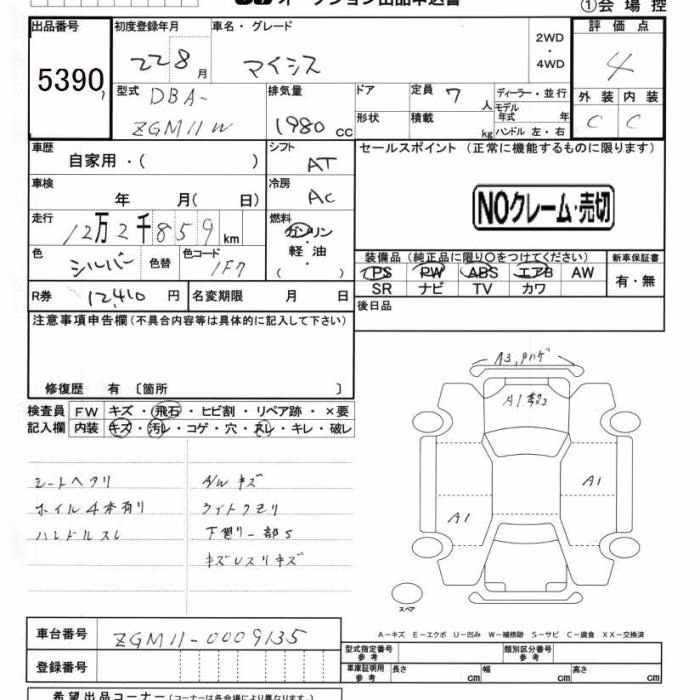 オークション出品申込書
①会場控
出品番号
5390
初度登録年月
22 8 月
車名・グレード
マイシス
2WD
・
4WD
評価点
4
外装 内装
C C
型式
DBA-
ZGM11W
排気量
1980 cc
ドア
形状
定員 7 人
積載 kg
ディーラー・並行
モデル年式 年
ハンドル 左・右
車歴
自家用・( )
シフト
AT
セールスポイント (正常に機能するものに限ります)
NOクレーム・売切
車検
年 月( 日)
冷房
AC
走行
12万2千859 km
燃料
ガソリン
軽油
( )
色
シルバー
色替
色コード
1F7
装備品 (純正品に限り○をつけてください)
新車保証書
有・無
PS PW ABS エアB AW
SR ナビ TV カワ
R券 12,410 円
名変期限 月 日
後日品
注意事項申告欄(不具合内容等は具体的に記入して下さい)
修復歴 有 〔箇所 〕
検査員記入欄
FW キズ・飛石・ヒビ割・リペア跡・×要
内装 キズ・汚レ・コゲ・穴・スレ・キレ・破レ
シートヘタリ
ホイル4本有り
ハンドルスレ
A/Wキズ
ライトクモリ
下廻り一部S
キズUスリキズ
A3,
A1
A1
A1
スペア
A−キズ E−エクボ U−凹み W−補修跡 S−サビ C−腐食 XX−交換済
車台番号
ZGM11-0009135
登録番号
型式指定番号
参考
類別区分番号
参考
車庫証明用
参考
長さ cm
幅 cm
高さ cm
希望出品コーナー(コーナーは各会場により異なります。)